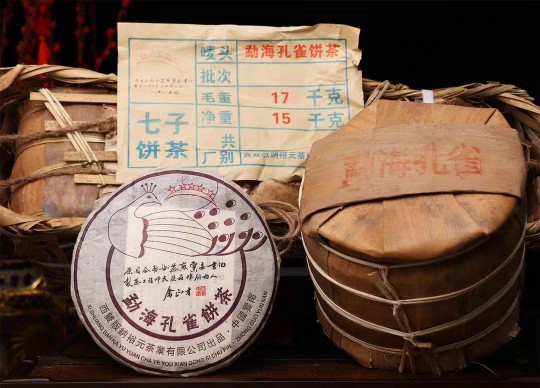 唛头 勐海孔雀饼茶
批次
毛重 17 千克
净重 15 千克
共
厂别
七子
饼茶
勐海孔雀
勐海孔雀饼茶
西雙版納裕元茶業有限公司出品·中國雲南
XI SHUANG BAN NA YU YUAN CHA YE YOU XIAN GONG SI CHU PIN